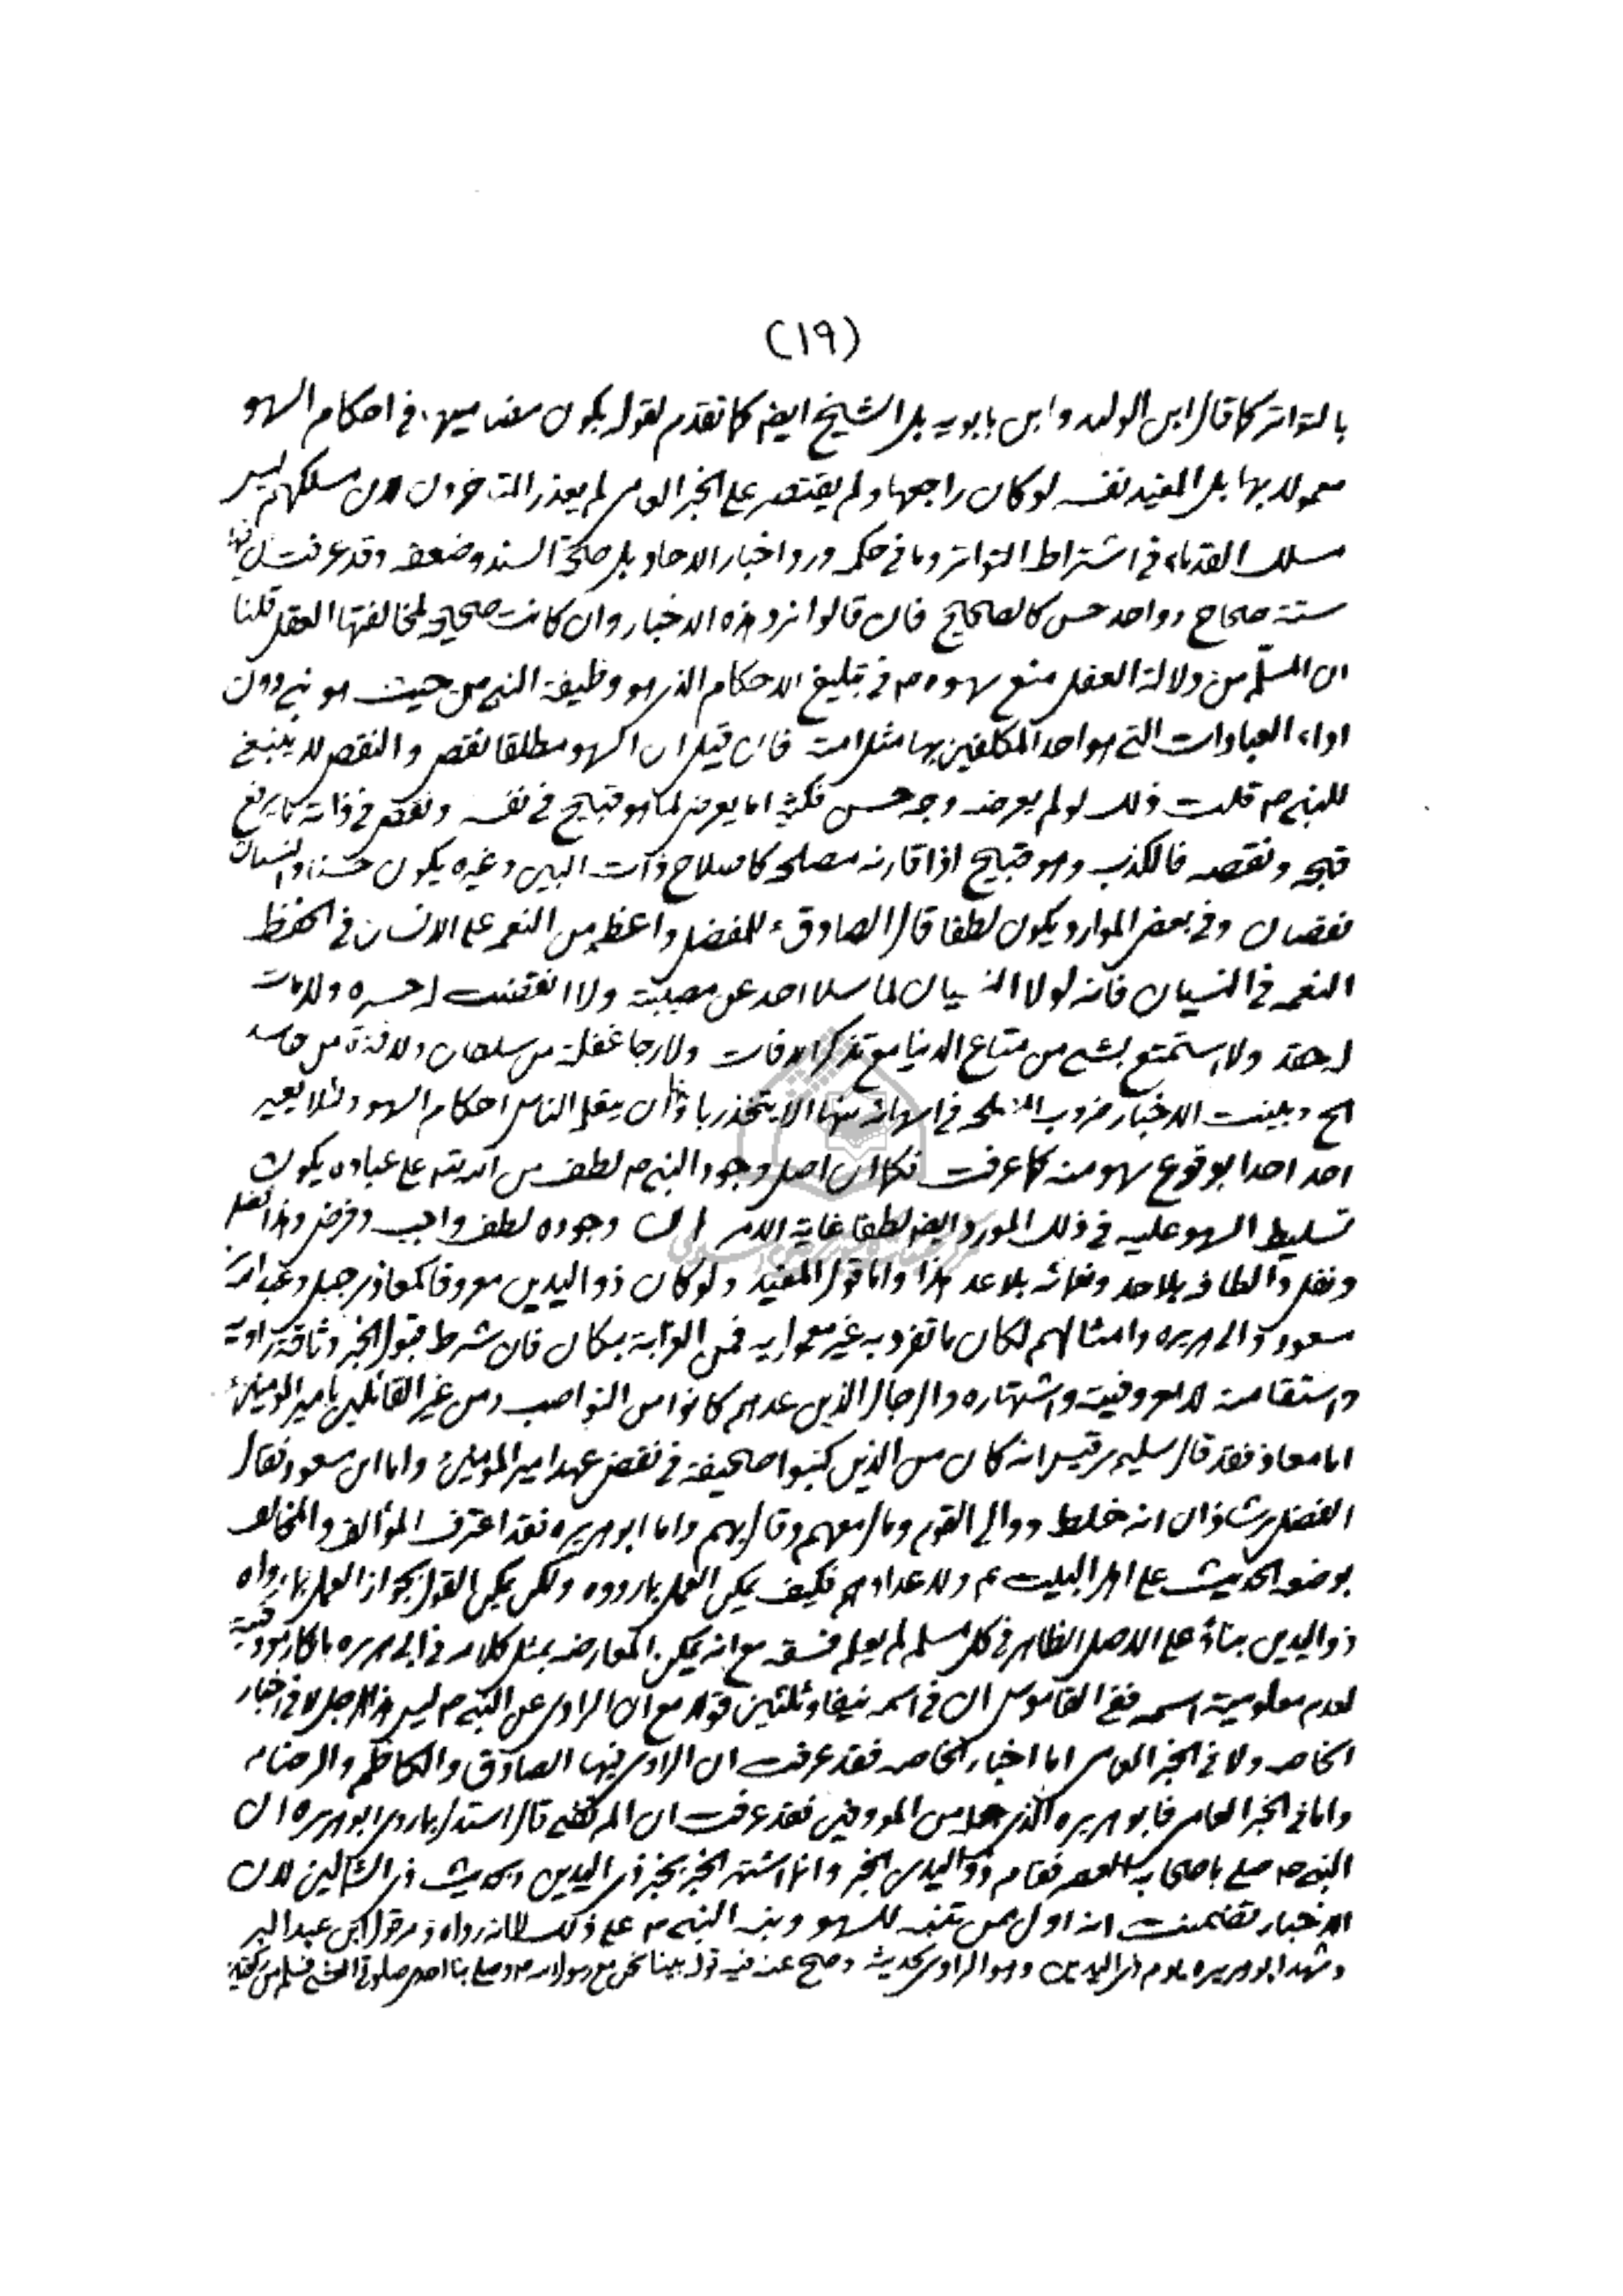 (١٩)
بالتواتر كما قال ابن الوليد وابن بابويه بل الشيخ ايضا كما تقدم لقوله بكون مضاميها في احكام السهو
معمولا بها بل المفيد نفسه لو كان راجعها ولم يقتصر على الخبر العامى لم يعذر المتاخرون لان مسلكهم ليس
مسلك القدماء في اشتراط التواتر وما في حكمه ورد اخبار الاحاد بل صحة السند وضعفه وقد عرفت ان فيها
ستة صحاح وواحد حسن كالصحيح فان قالوا نرد هذه الاخبار وان كانت صحيحة لمخالفتها العقل قلنا
ان المسلّم من دلالة العقل منع سهوه ص في تبليغ الاحكام الذى هو وظيفة النبى من حيث هو نبى دون
اداء العبادات التى هو احد المكلفين بها مثل امته فان قيل ان السهو مطلقا نقص والنقص لا ينبغى
للنبى ص قلت ذلك لو لم يعرضه وجه حسن فكثيرا ما يعرض لما هو قبيح في نفسه ونقص في ذاته ما يرفع
قبحه ونقصه فالكذب وهو قبيح اذا قارنه مصلحة كاصلاح ذات البين وغيره يكون حسنا والنسيان
نقصان وفي بعض الموارد يكون لطفا قال الصادق ع للمفضل واعظم من النعمة على الانسان في الحفظ
النعمة في النسيان فانه لولا النسيان لما سلا احد عن مصيبته ولا انقضت له حسرة ولا مات
له حقد ولا استمتع بشىء من متاع الدنيا مع تذكر الافات ولا رجا غفلة من سلطان ولا فترة من حاسد
الخ وبينت الاخبار ضروب المصلحة في اسهائه منها الا يتخذ ربا وان يتعلم الناس احكام السهو ولئلا يعير
احد احدا بوقوع سهو منه كما عرفت فكما ان اصل وجود النبى ص لطف من الله تعالى على عباده يكون
تسليط السهو عليه في ذلك المورد ايضا لطفا غاية الامر ان وجوده لطف واجب وفرض وهذا تفضل
ونفل والطافه بلا حد ونعمائه بلا عد هذا واما قول المفيد ولو كان ذو اليدين معروفا كمعاذ بن جبل وعبد الله بن
مسعود وابى هريره وامثالهم لكان ما تفرد به غير معمول به فمن الغرابة بمكان فان شرط قبول الخبر وثاقة راويه
واستقامته لا معروفيته واشتهاره والرجال الذين عدهم كانوا من النواصب ومن غير القائلين بامير المؤمنين ع
اما معاذ فقد قال سليم بن قيس انه كان من الذين كتبوا صحيفة في نقض عهد امير المؤمنين ع واما ابن مسعود فقال
الفضل بن شاذان انه خلط ووالى القوم ومال معهم وقال بهم واما ابو هريره فقد اعترف المؤالف والمخالف
بوضعه الحديث على اهل البيت ع ولاعدادهم فكيف يمكن العمل بما رووه ولكن يمكن القول بجواز العمل بما رواه
ذو اليدين بناء على الاصل الظاهر في كل مسلم لم يعلم فسقه مع انه يمكن المعارضه بمثل كلامه في ابى هريره بانكار معروفيته
لعدم معلومية اسمه ففى القاموس ان في اسمه نيفا وثلثين قولا مع ان الراوى عن النبى ص ليس هذا الرجل لا في اخبار
الخاصه ولا في الخبر العامى اما اخبار الخاصه فقد عرفت ان الراوى فيها الصادق والكاظم والرضا ع
واما في الخبر العامى فابو هريره الذى جعله من المعروفين فقد عرفت ان المرتضى قال استدل بما روى ابو هريره ان
النبى ص صلى باصحابه العصر فقام ذو اليدين الخبر وانما اشتهر الخبر بخبر ذى اليدين وبحديث ذى الشمالين لان
الاخبار تضمنت انه اول من تنبه للسهو ونبه النبى ص على ذلك لا انه رواه ومر قول ابن عبد البر
وشهد ابو هريره يوم ذى اليدين وهو الراوى لحديثه وصح عنه فيه قوله بينا نحن مع رسول الله ص وصلى بنا احدى صلوتى العشى فسلم من ركعتين